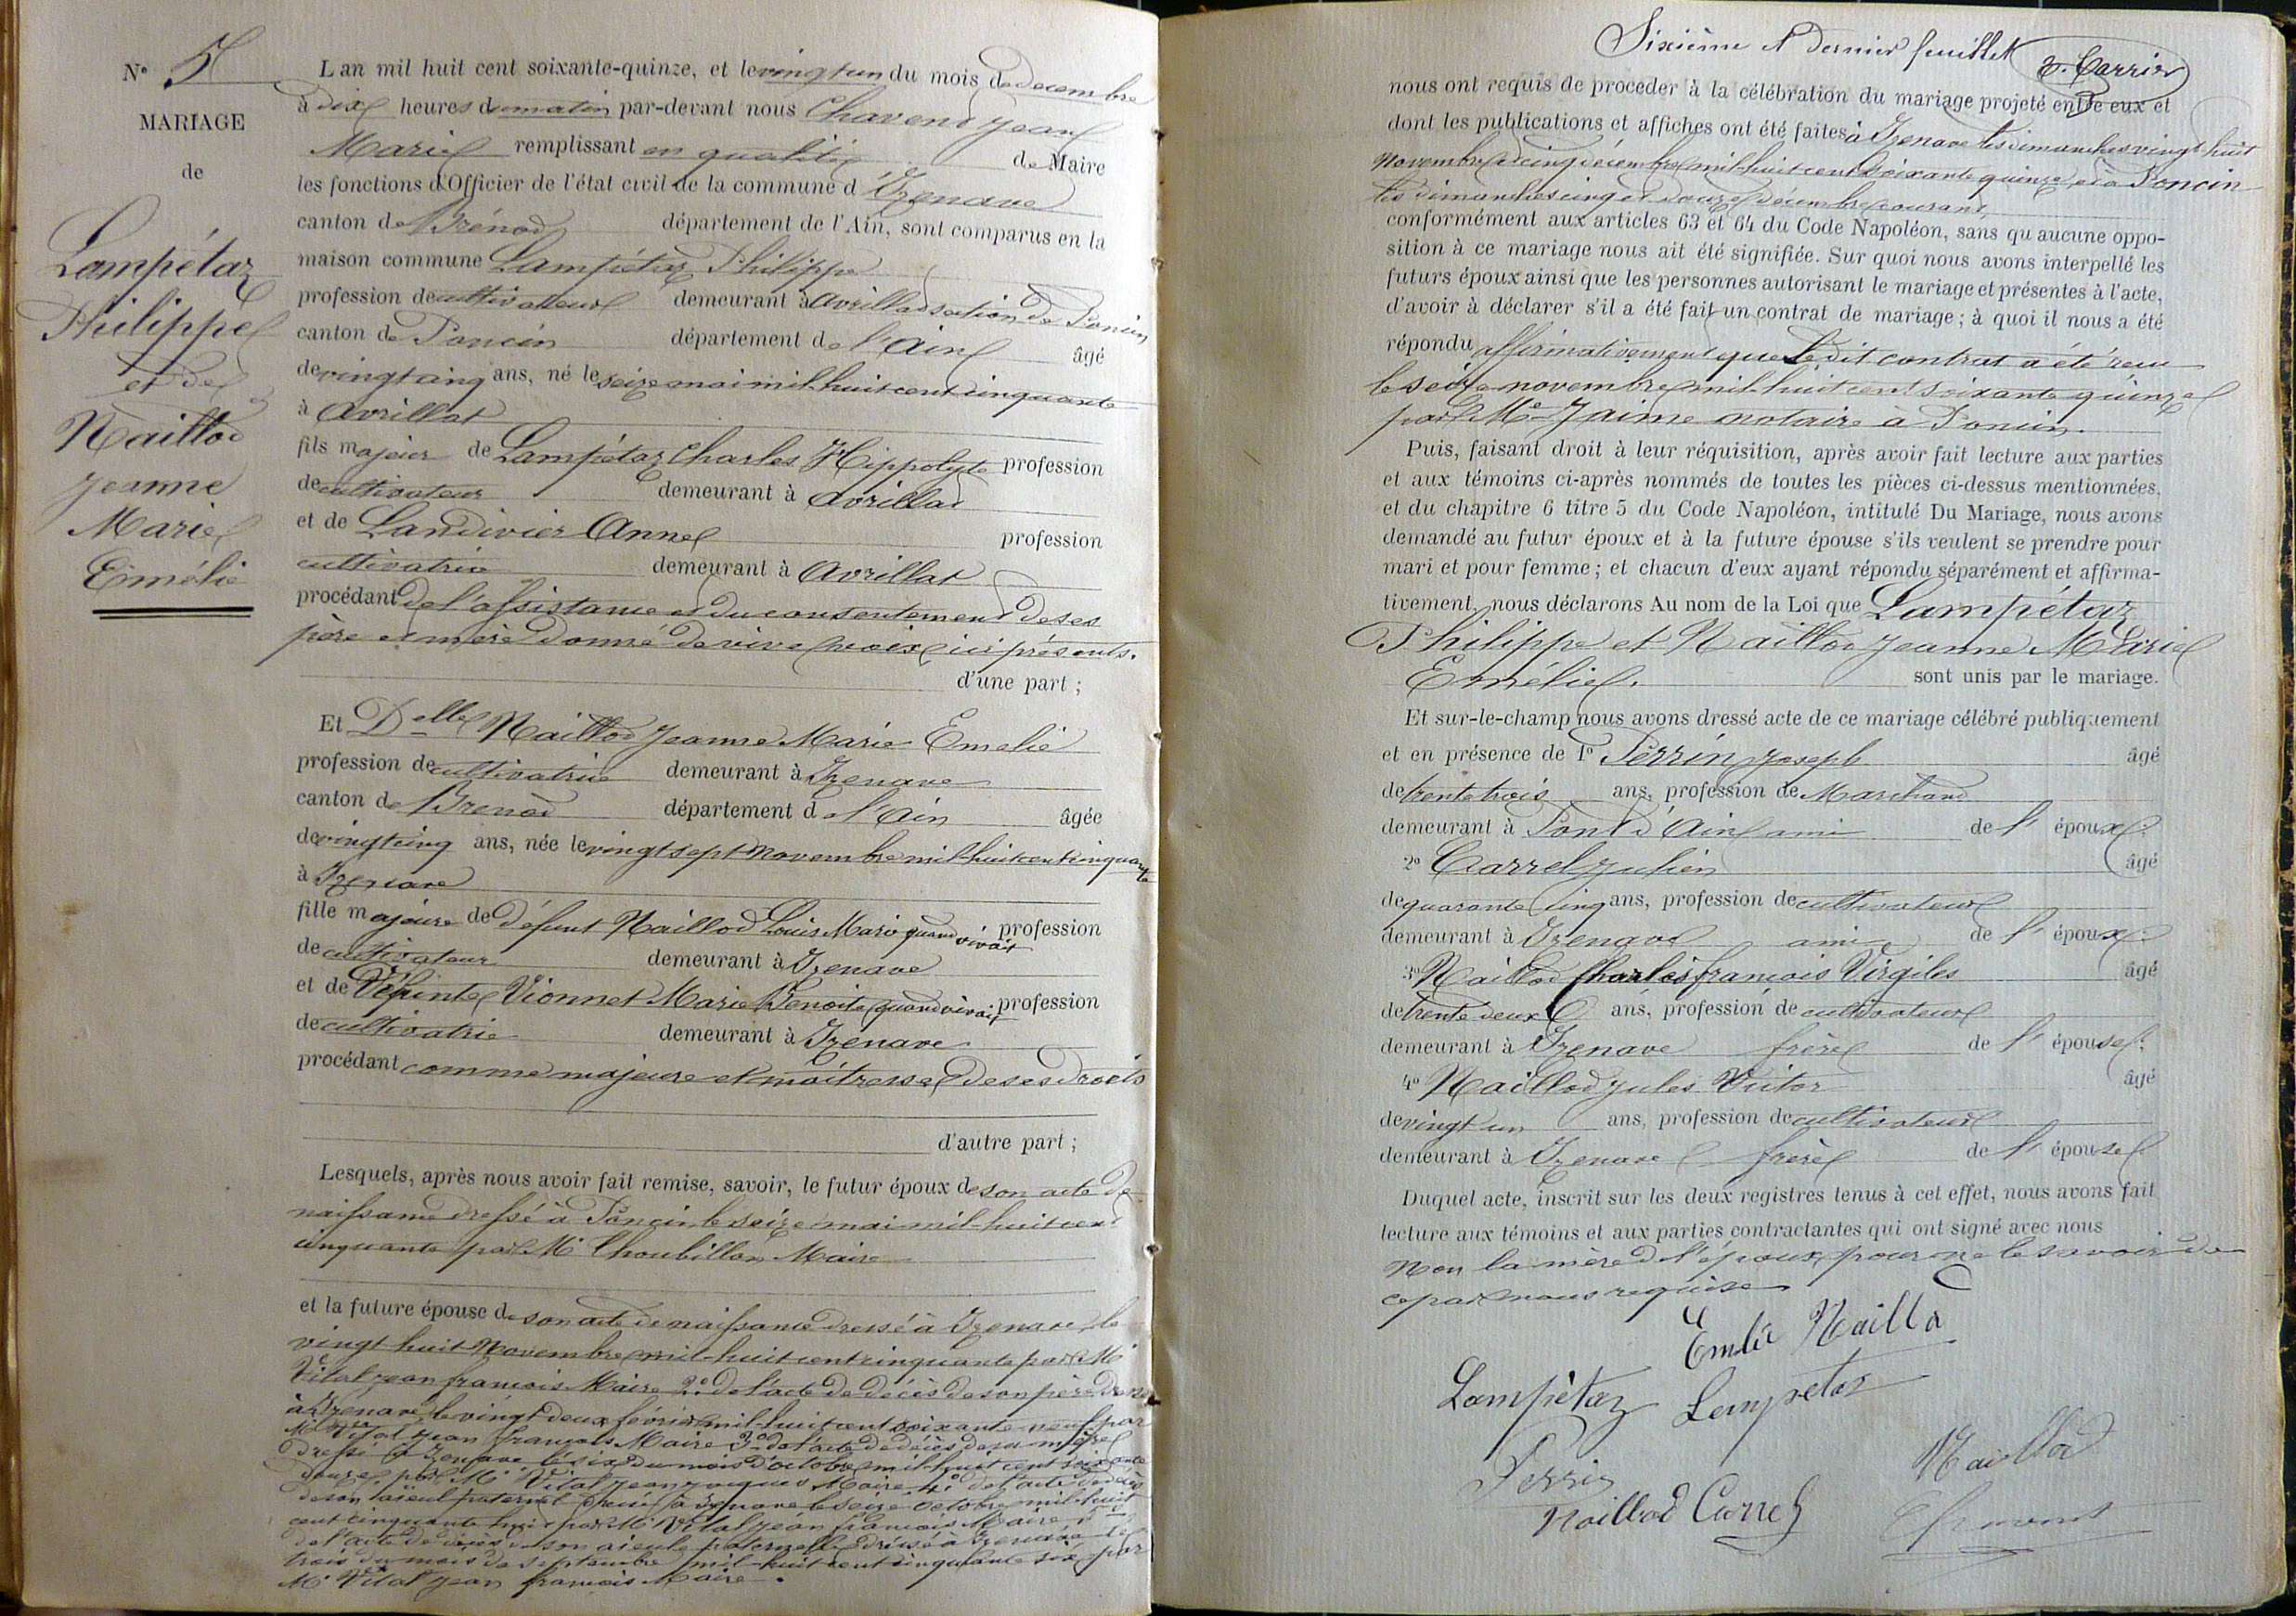 N° 5
MARIAGE
de
Lampétaz
Philippe
et de
Naillod
Jeanne
Marie
Emélie
L an mil huit cent soixante-quinze, et le vingt un du mois de décembre
à dix heures du matin par-devant nous Chavend Jean
Marie remplissant en qualité de Maire
les fonctions d'Officier de l'état civil de la commune d'Izenave
canton de Brénod département de l'Ain, sont comparus en la
maison commune Lampétaz Philippe
profession de cultivateur demeurant à Avrillat section de Poncin
canton de Poncin département de l'Ain âgé
de vingt cinq ans, né le seize mai mil-huit cent cinquante
à Avrillat
fils majeur de Lampétaz Charles Hippolyte profession
de cultivateur demeurant à Avrillat
et de Landivier Anne profession
cultivatrice demeurant à Avrillat
procédant de l'assistance et du consentement de ses
père et mère donné de vive voix ici présents.
d'une part ;
Et Delle Naillod Jeanne Marie Emelie
profession de cultivatrice demeurant à Izenave
canton de Brenod département d l'Ain âgée
de vingt cinq ans, née le vingt sept novembre mil-huit cent cinquante
à Izenave
fille majeure de défunt Naillod Louis Marie quand vivait profession
de cultivateur demeurant à Izenave
et de défunte Vionnet Marie Benoite quand vivait profession
de cultivatrice demeurant à Izenave
procédant comme majeure et maîtresse de ses droits
d'autre part ;
Lesquels, après nous avoir fait remise, savoir, le futur époux de son acte de
naissance dressé à Poncin le seize mai mil-huit cent
cinquante par Mr Choubillon Maire
et la future épouse de son acte de naissance dressé à Izenave le
vingt huit Novembre mil-huit cent cinquante par Mr
Vital Jean François Maire 2° de l'acte de décès de son père dressé
à Izenave le vingt deux février mil-huit cent soixante neuf par
Mr Vital Jean François Maire 3° de l'acte de décès de sa mère
dressé à Izenave le six du mois d'octobre mil-huit cent soixante
douze par Mr Vital Jean Jacques Maire 4° de l'acte de décès
de son aïeul paternel dressé à Izenave le seize octobre mil-huit
cent cinquante par Mr Vital Jean François Maire 5°
de l'acte de décès de son aïeule paternelle dressé à Izenave le
trois du mois de septembre mil-huit cent cinquante six par
Mr Vital Jean François Maire.
Sixième et dernier feuillet
nous ont requis de proceder à la célébration du mariage projeté entre eux et
dont les publications et affiches ont été faites à Izenave les dimanches vingt huit
novembre et cinq décembre mil-huit cent soixante quinze et à Poncin
les dimanches cinq et douze décembre courant,
conformément aux articles 63 et 64 du Code Napoléon, sans qu aucune oppo-
sition à ce mariage nous ait été signifiée. Sur quoi nous avons interpellé les
futurs époux ainsi que les personnes autorisant le mariage et présentes à l'acte,
d'avoir à déclarer s'il a été fait un contrat de mariage ; à quoi il nous a été
répondu affirmativement que le dit contrat a été reçu
le seize novembre mil-huit cent soixante quinze
par Me Jaime notaire à Poncin.
Puis, faisant droit à leur réquisition, après avoir fait lecture aux parties
et aux témoins ci-après nommés de toutes les pièces ci-dessus mentionnées,
et du chapitre 6 titre 5 du Code Napoléon, intitulé Du Mariage, nous avons
demandé au futur époux et à la future épouse s'ils veulent se prendre pour
mari et pour femme ; et chacun d'eux ayant répondu séparément et affirma-
tivement, nous déclarons Au nom de la Loi que Lampétaz
Philippe et Naillod Jeanne Marie
Emélie. sont unis par le mariage.
Et sur-le-champ nous avons dressé acte de ce mariage célébré publiquement
et en présence de 1° Perrin Joseph âgé
de trente trois ans, profession de Marchand
demeurant à Pont d'Ain ami de l' époux
2° Carrel Julien âgé
de quarante cinq ans, profession de cultivateur
demeurant à Izenave ami de l' époux
3° Naillod Charles François Virgiles âgé
de trente deux ans, profession de cultivateur
demeurant à Izenave frère de l' épouse
4° Naillod Jules Victor âgé
de vingt un ans, profession de cultivateur
demeurant à Izenave frère de l' épouse
Duquel acte, inscrit sur les deux registres tenus à cet effet, nous avons fait
lecture aux témoins et aux parties contractantes qui ont signé avec nous
non la mère de l'époux pour ne le savoir de
ce par nous requise
Emélie Naillod
Lampétaz Lampetaz
Perrin Naillod
Naillod Carrel